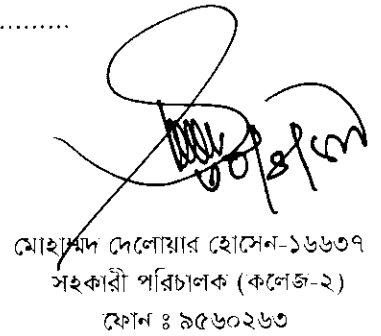 ..........
মোহাম্মদ দেলোয়ার হোসেন-১৬৬৩৭
সহকারী পরিচালক (কলেজ-২)
ফোন ঃ ৯৫৬০২৬৩